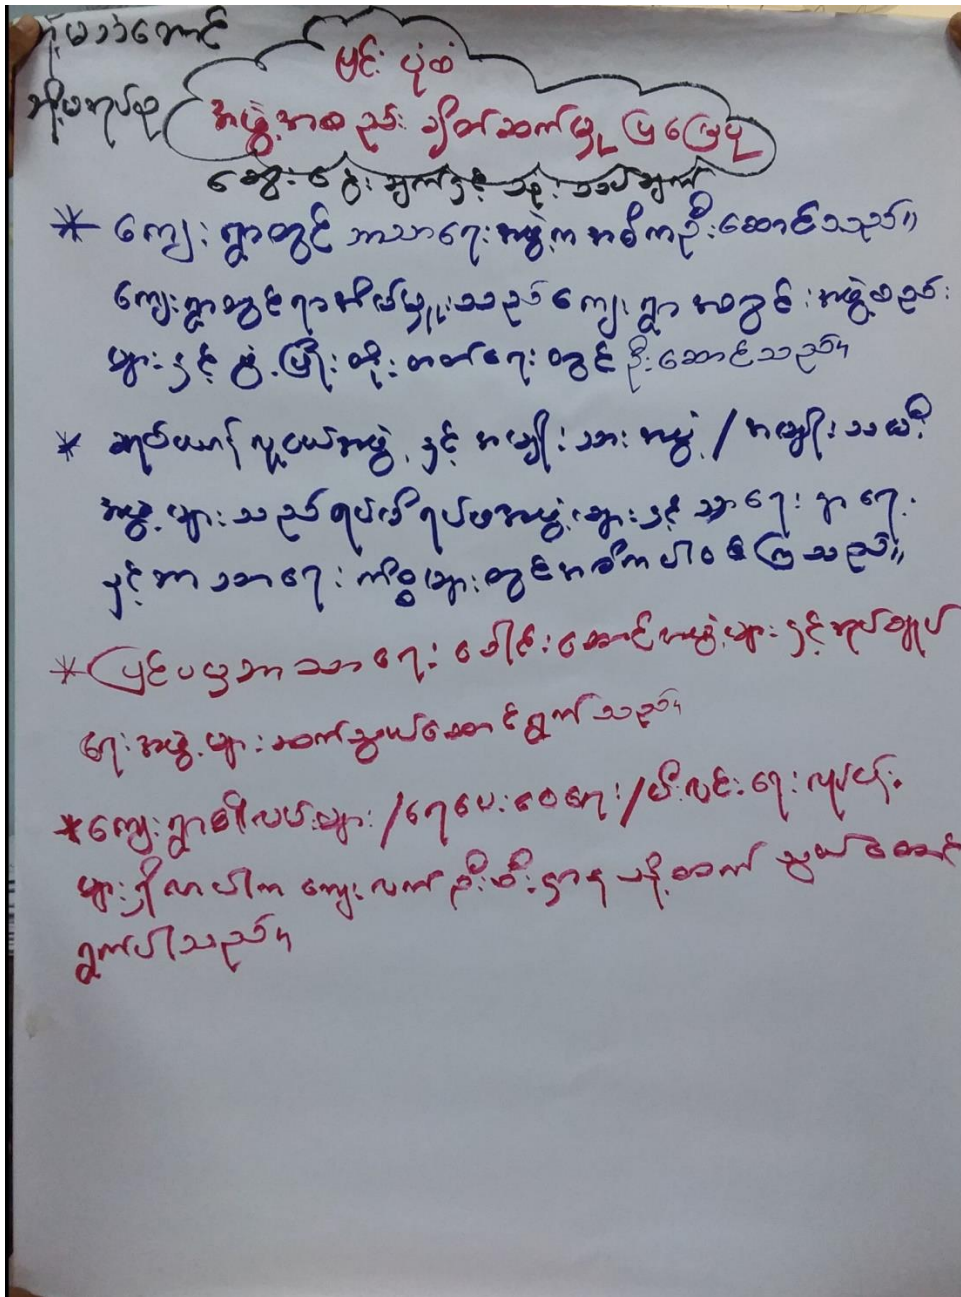 မြင်းပုံထံ
အဖွဲ့အစည်း ချိတ်ဆက်မှု ပြမြေပုံ
ဆွေးနွေးချက်နှင့် သုံးသပ်ချက်
* ကျေးရွာတွင် ဘာသာရေးအဖွဲ့က အဓိကဦးဆောင်သည်။
ကျေးရွာတွင် ရာအိမ်မှူးသည် ကျေးရွာ အတွင်း အဖွဲ့စည်း
များနှင့် ဖွံ့ဖြိုးတိုးတတ်ရေးတွင် ဦးဆောင်သည်။
* ခရစ်ယာန်လူငယ်အဖွဲ့ နှင့် အမျိုးသားအဖွဲ့/အမျိုးသမီး
အဖွဲ့များသည် ရပ်မိရပ်ဖအဖွဲ့များနှင့် သာရေးနာရေး
နှင့် ဘာသာရေးကိစ္စများတွင် အဓိကပါဝင်ကြသည်။
* ပြင်ပမှ ဘာသာရေးခေါင်းဆောင်အဖွဲ့များနှင့် အုပ်ချုပ်
ရေးအဖွဲ့များ ဆက်သွယ်ဆောင်ရွက်သည်။
* ကျေးရွာ၏ လမ်းများ/ရေပေးဝေရေး/မီးလင်းရေးလုပ်ငန်း
များရှိလာပါက ကျေးလက်ဦးစီးဌာနသို့ ဆက်သွယ်ဆောင်
ရွက်ပါသည်။